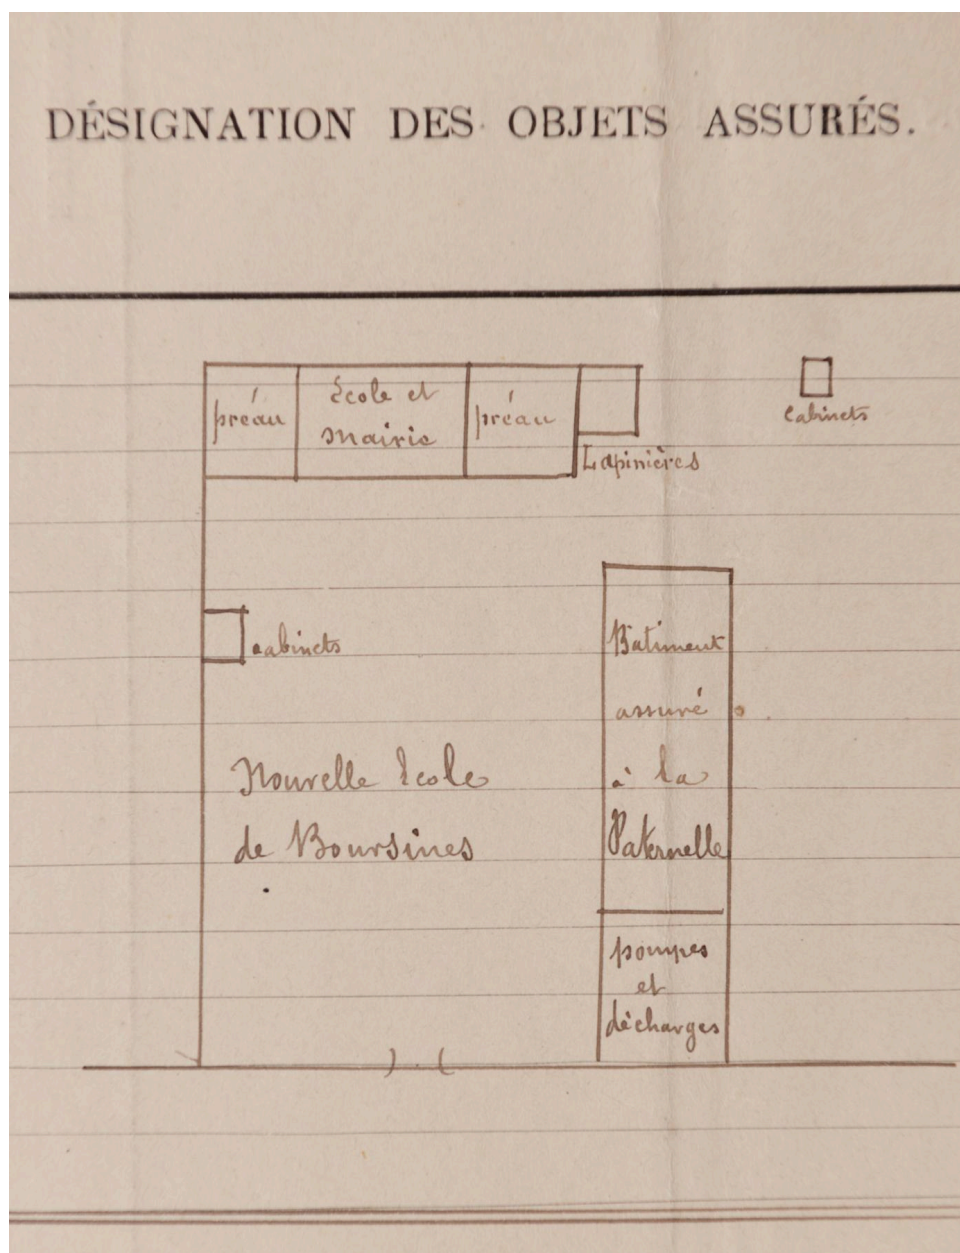 DÉSIGNATION DES OBJETS ASSURÉS.
préau
École et
Mairie
préau
Lapinières
Cabinets
cabinets
Nouvelle École
de Boursines
Bâtiment
assuré
à la
Paternelle
pompes
et
décharges